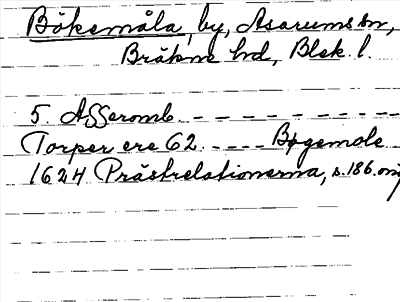 Bökemåla, by, Asarums sn,
Bräkne hd, Blek. l.
5. Asseromb - - - - - - - - - -
Torper ere 62. - - - - Bøgemole
1624 Prästrelationerna, s. 186.